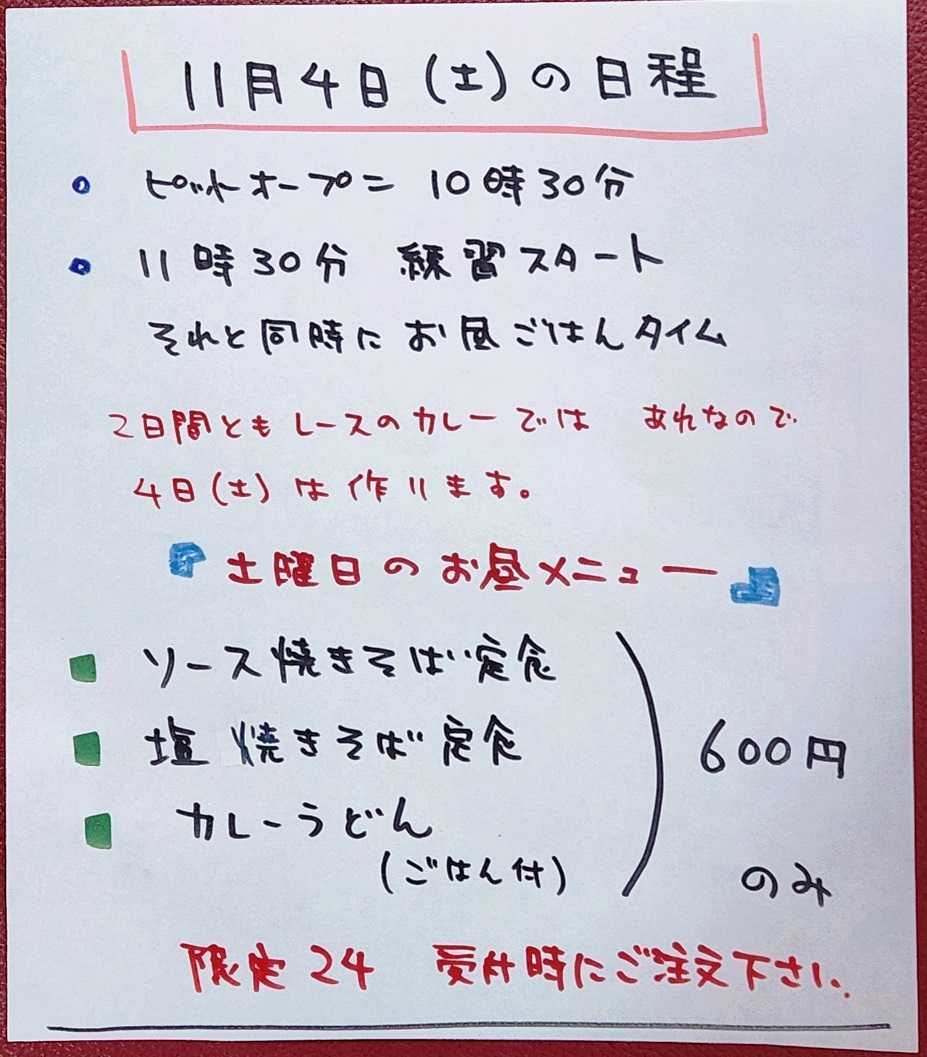 11月4日(土)の日程
ピットオープン 10時30分
11時30分 練習スタート
それと同時にお昼ごはんタイム
2日間ともレースのカレーでは あれなので
4日(土)は作ります。
『土曜日のお昼メニュー』
ソース焼きそば定食
塩焼きそば定食
カレーうどん
(ごはん付)
600円
のみ
限定24 受付時にご注文下さい.